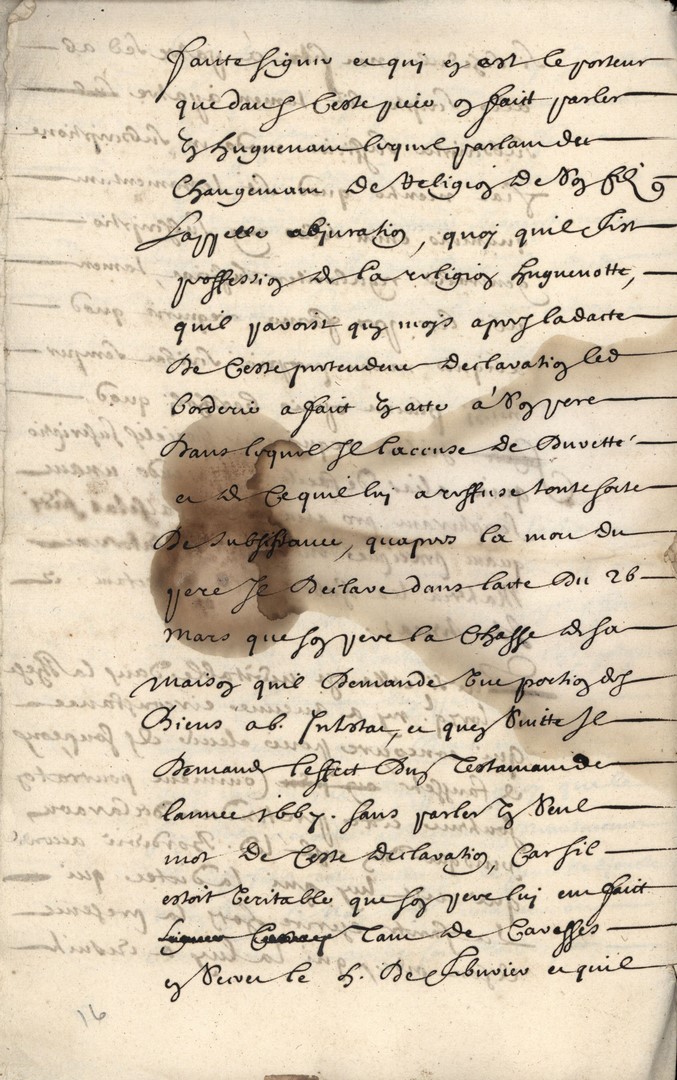 faitte signer et qui en est le porteur
que dans ceste piece on faict parler
un huguenaut lequel parlant du
changement de religion de son filz
l'appelle abjuration, quoy quil fist
proffession de la religion huguenotte,
quil paroist que mois apres la dacte
de ceste pretendue declaration led
borderie a faict un acte a son pere
dans lequel Il laccuse de duretté
et de ce quil luy a reffusé toute sorte
de subsistance, quapres la mort du
pere Il declare dans lacte du 26
mars que son pere la chassé de sa
maison quil demande une portion des
biens ab. Intestat, et quen suitte Il
demande leffect dun testamant de
lannee 1667. sans parler un seul
mot de ceste declaration, car sil
estoit veritable que son pere lui eut faict
tant de caresses
en secret le 4. de febvrier et quil
16